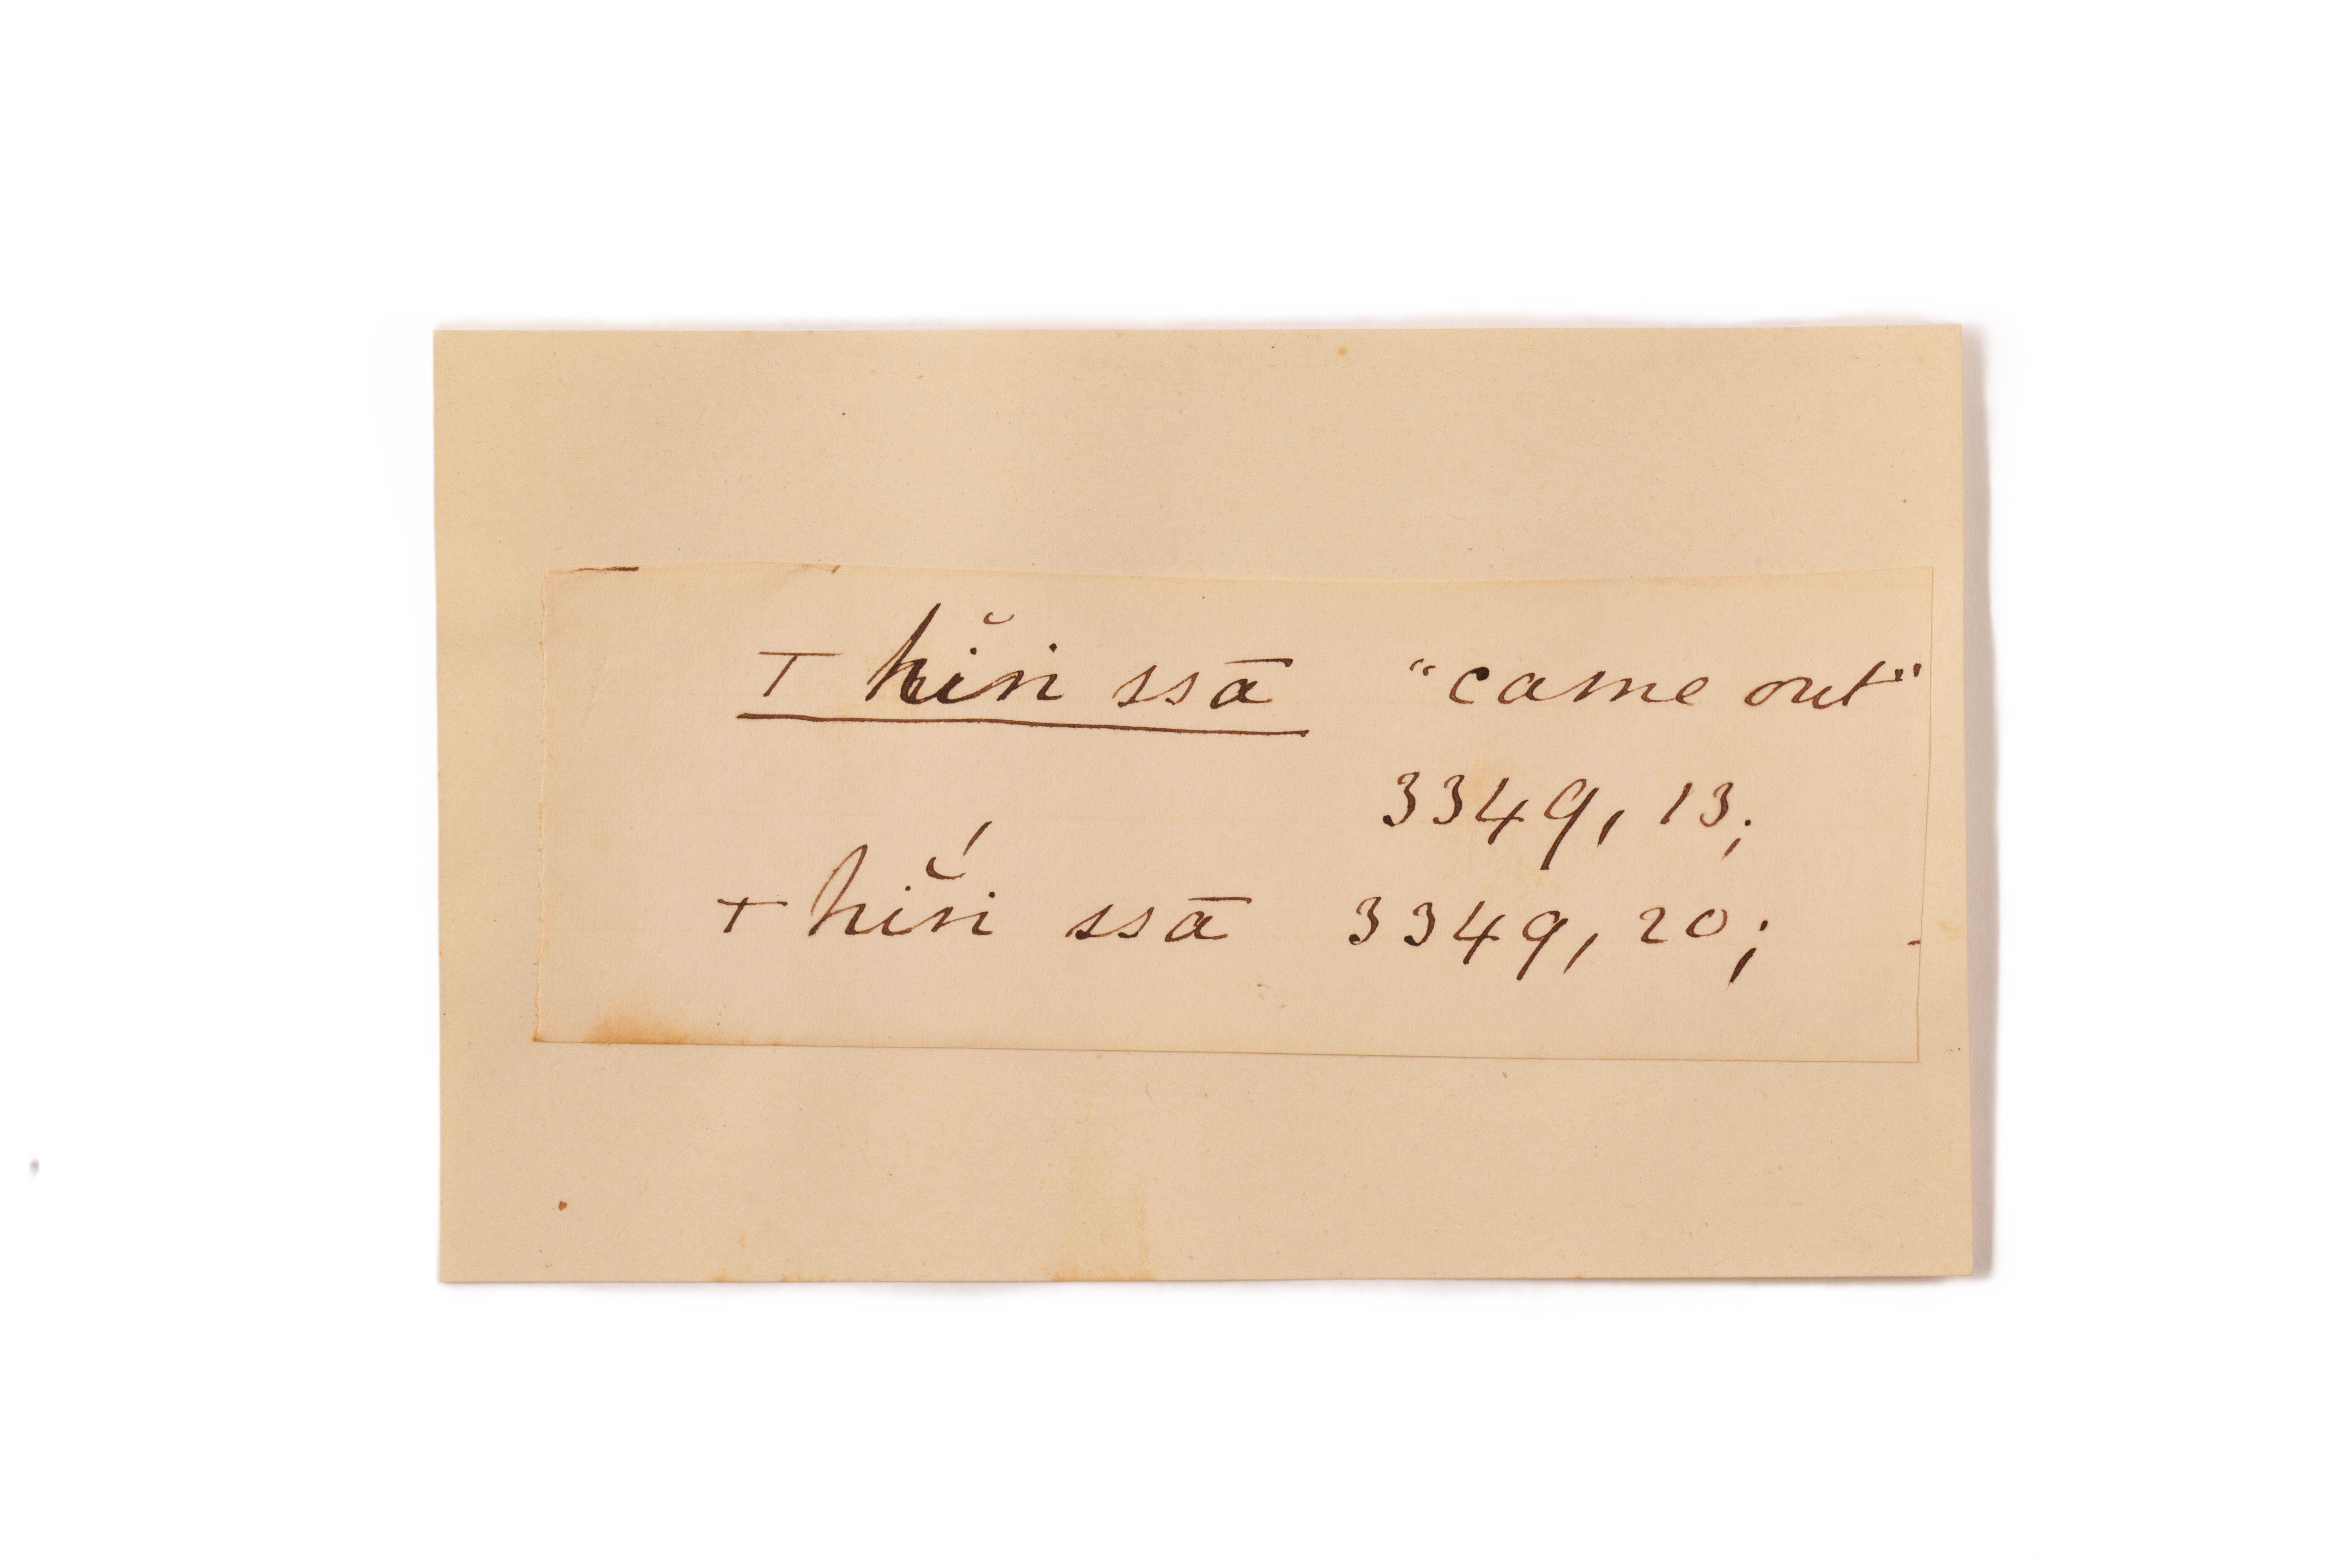 T hĭṅ ssā "came out"
3349, 13;
T hĭ́ṅ ssā 3349, 20;